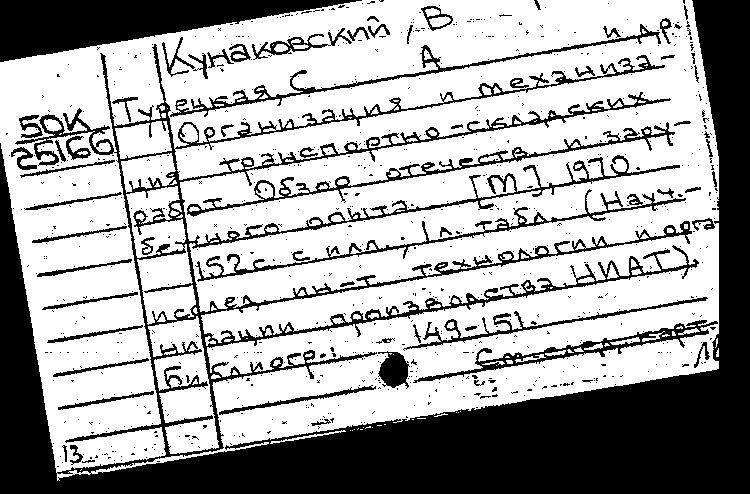 Кунаковский, В
Турецкая, С А и др.
50К
25166
Организация и механиза-
ция транспортно-складских
работ. Обзор отечеств. и зару-
бежного опыта. [М], 1970.
152с. с илл.; 1л. табл. (Науч.-
исслед. ин-т технологии и орга-
низации производства НИАТ).
Библиогр.: 149-151.
См. след. карт.
13